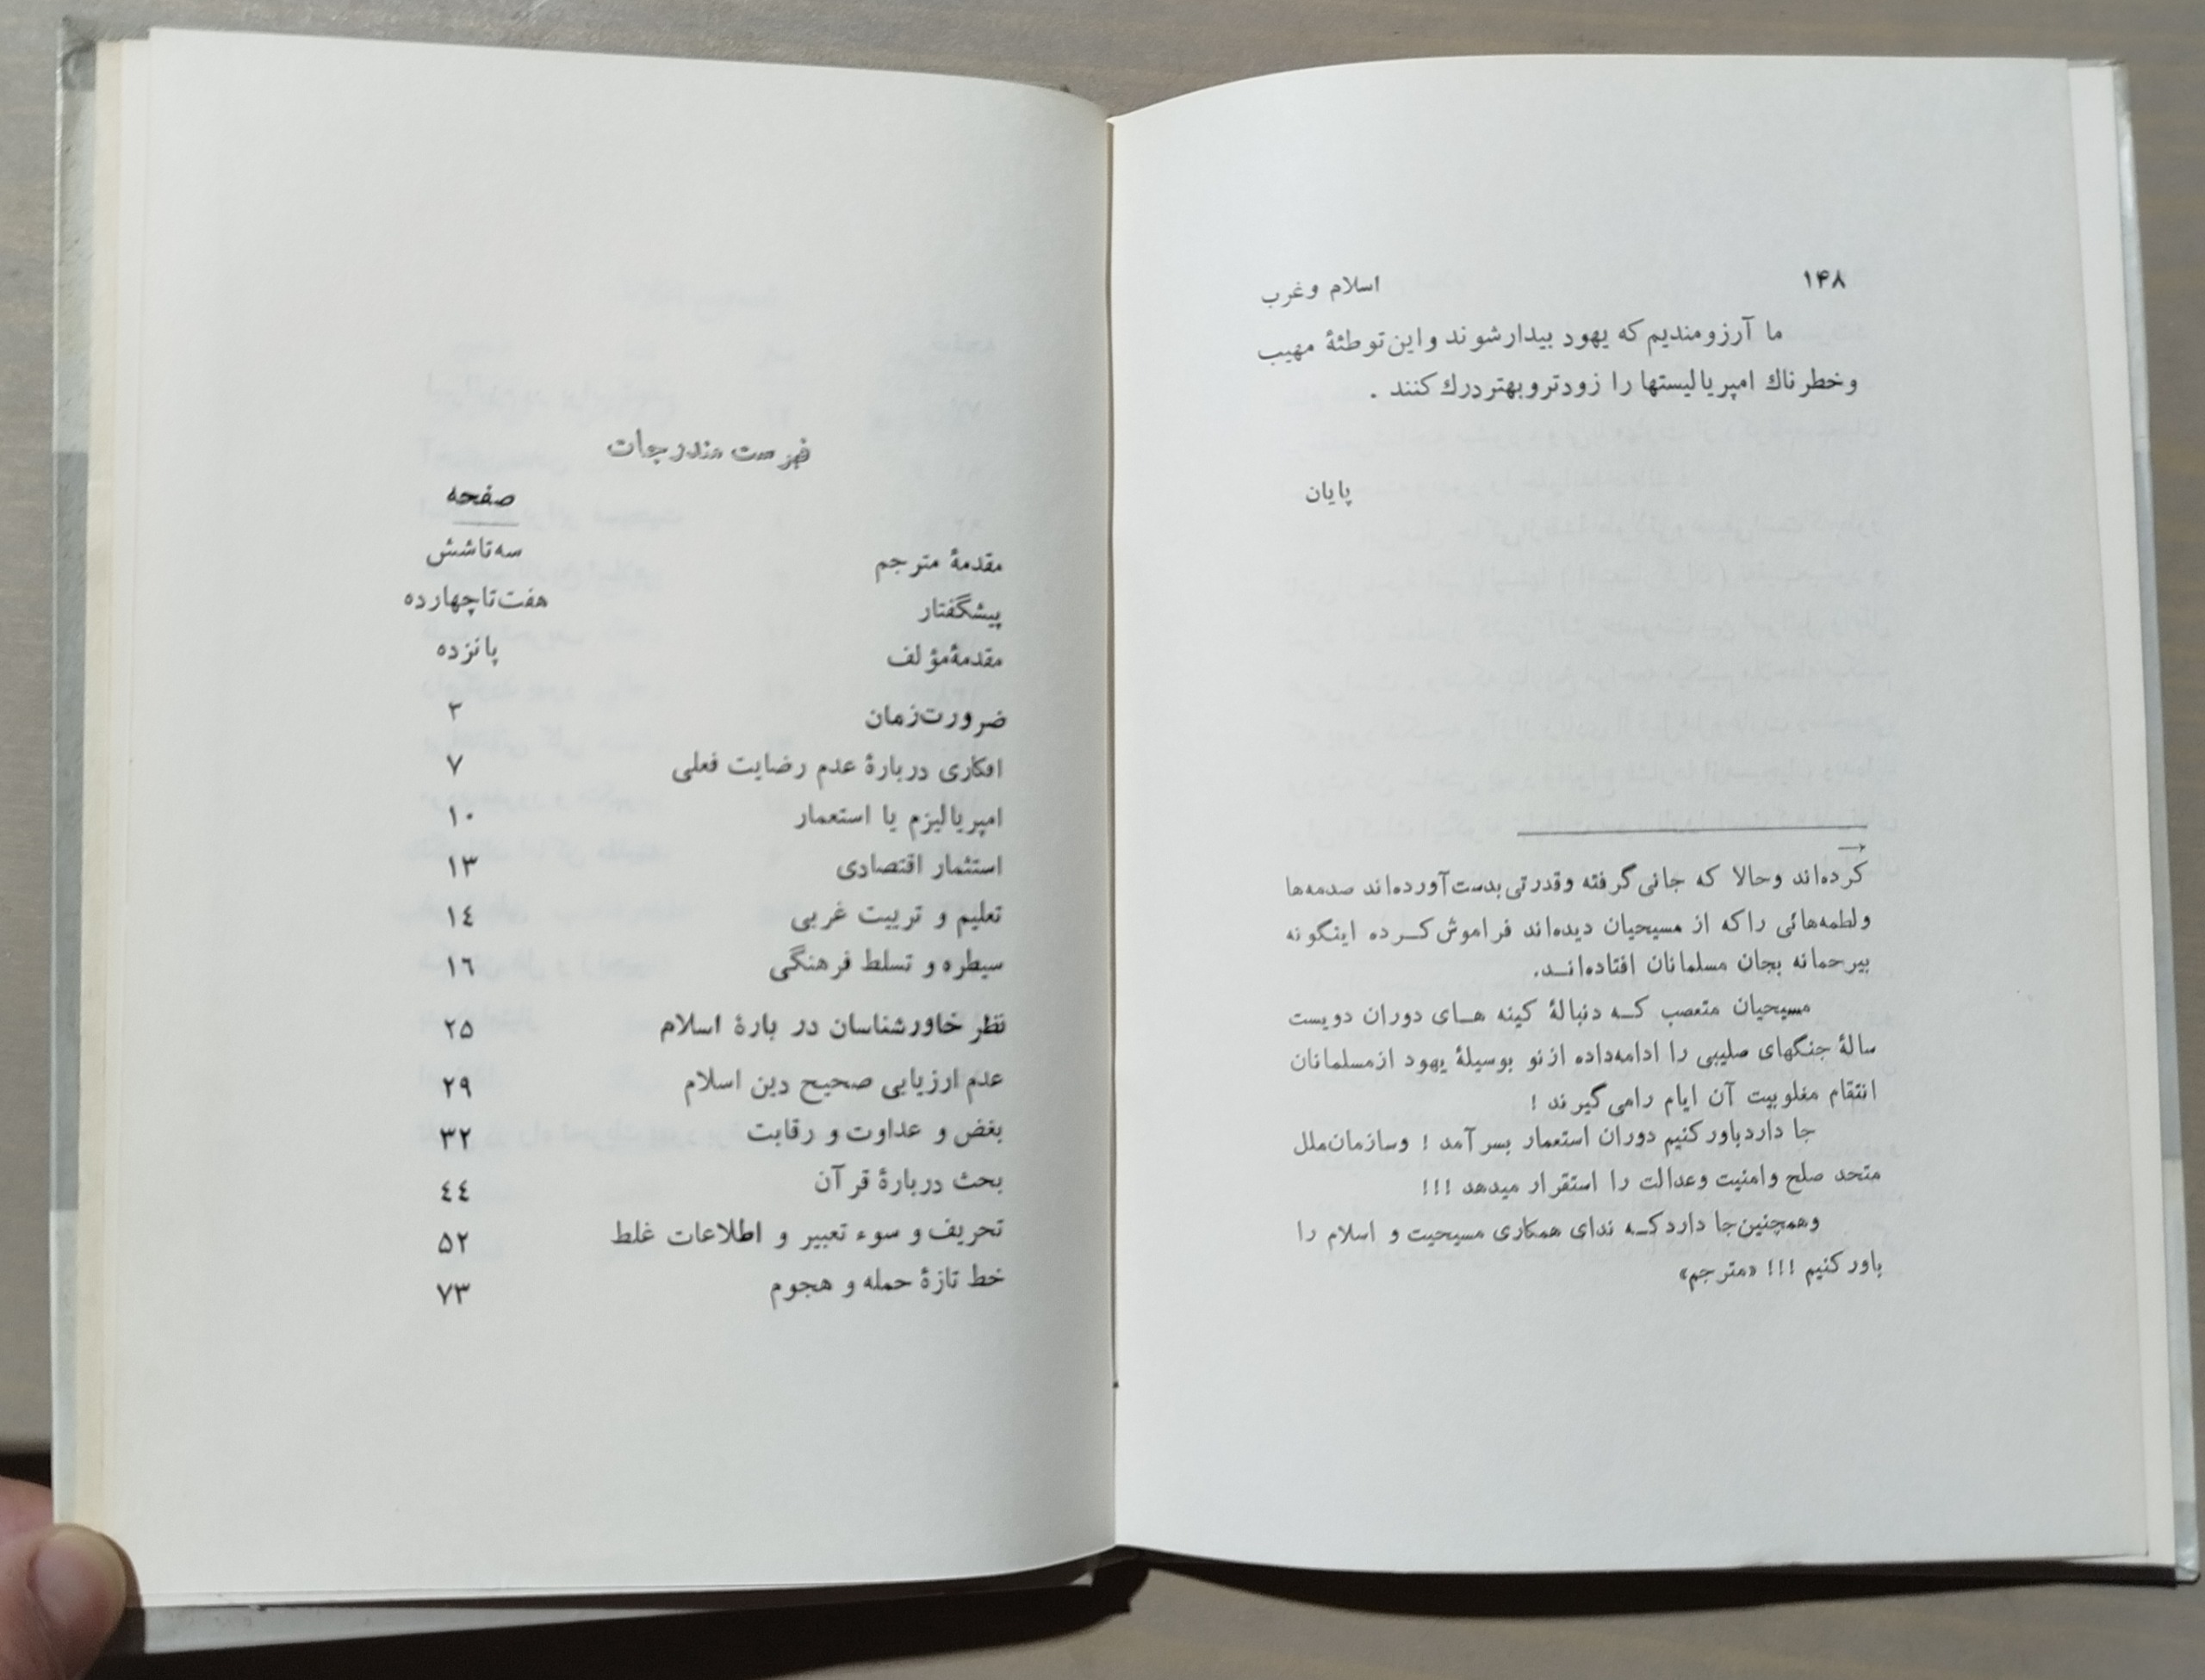 ۱۴۸ اسلام وغرب
ما آرزومندیم که یهود بیدارشوند واین توطئهٔ مهیب
وخطرناك امپریالیستها را زودتروبهتردرك کنند .
پایان
→
کرده‌اند وحالا که جانی گرفته وقدرتی بدست‌آورده‌اند صدمه‌ها
ولطمه‌هائی راکه از مسیحیان دیده‌اند فراموش کـرده اینگونه
بیرحمانه بجان مسلمانان افتاده‌انـد.
مسیحیان متعصب کـه دنبالهٔ کینه هـای دوران دویست
سالهٔ جنگهای صلیبی را ادامه‌داده ازنو بوسیلهٔ یهود ازمسلمانان
انتقام مغلوبیت آن ایام رامی‌گیرند !
جا داردباورکنیم دوران استعمار بسرآمد ! وسازمان‌ملل
متحد صلح وامنیت وعدالت را استقرار میدهد !!!
وهمچنین‌جا داردکـه ندای همکاری مسیحیت و اسلام را
باورکنیم !!! «مترجم»
فهرست مندرجات
صفحه
مقدمهٔ مترجم سه‌تاشش
پیشگفتار هفت‌تاچهارده
مقدمهٔ‌مؤلف پانزده
ضرورت‌زمان ۳
افکاری دربارهٔ عدم رضایت فعلی ۷
امپریالیزم یا استعمار ۱۰
استثمار اقتصادی ۱۳
تعلیم و تربیت غربی ١٤
سیطره و تسلط فرهنگی ١٦
نظر خاورشناسان در بارهٔ اسلام ۲۵
عدم ارزیابی صحیح دین اسلام ۲۹
بغض و عداوت و رقابت ۳۲
بحث دربارهٔ قرآن ٤٤
تحریف و سوء تعبیر و اطلاعات غلط ۵۲
خط تازهٔ حمله و هجوم ۷۳